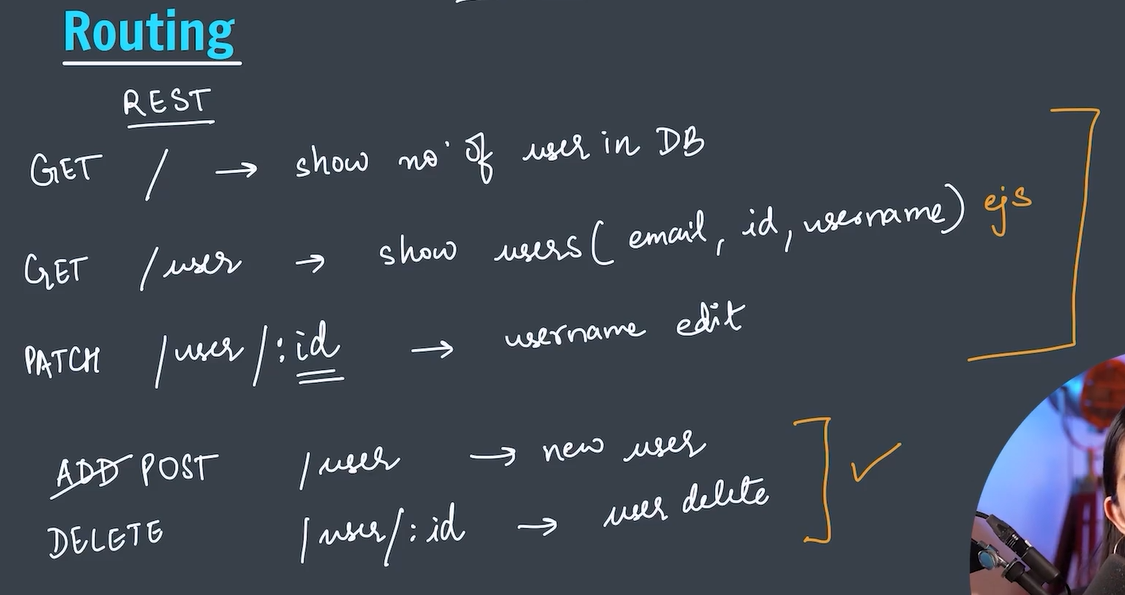 Routing
REST
GET / → show no. of user in DB
GET /user → show users( email, id, username) ejs
PATCH /user/:id → username edit
ADD POST /user → new user
DELETE /user/:id → user delete